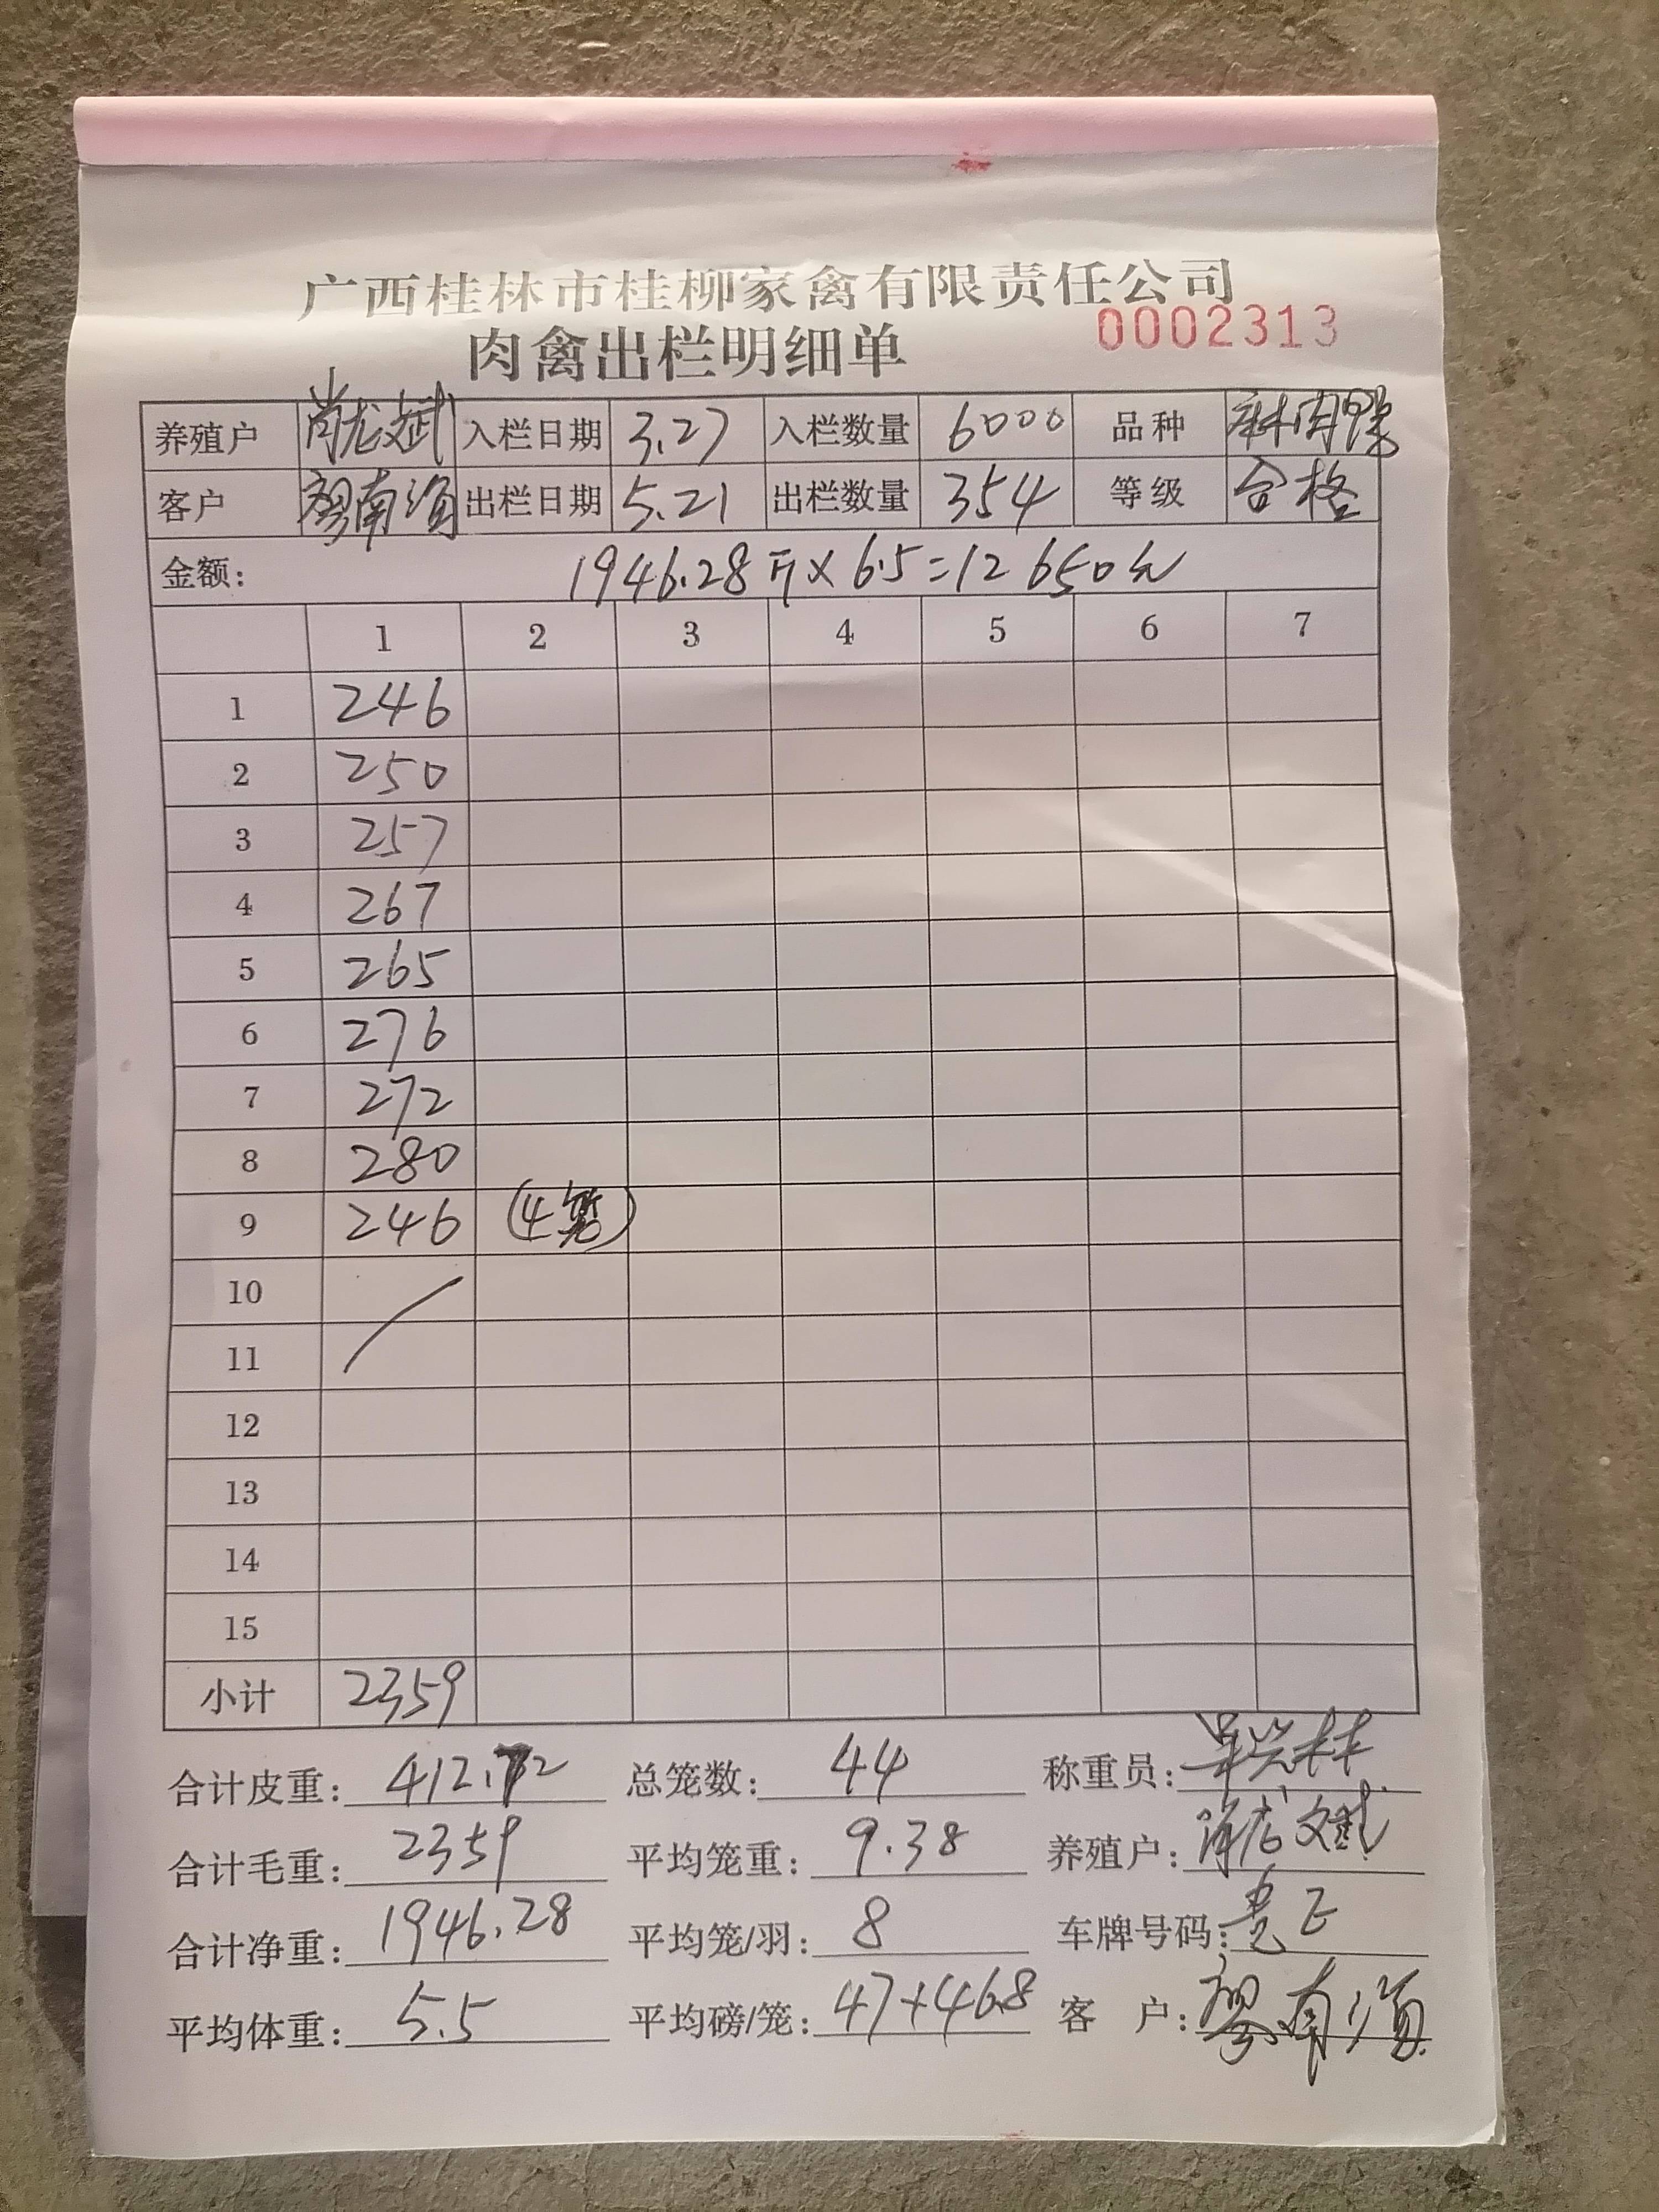 广西桂林市桂柳家禽有限责任公司
肉禽出栏明细单 0002313
养殖户 尚龙斌 入栏日期 3.27 入栏数量 6000 品种 麻肉鸭
客户 廖南海 出栏日期 5.21 出栏数量 354 等级 合格
金额: 1946.28斤×6.5=12650元
1 2 3 4 5 6 7
1 246
2 250
3 257
4 267
5 265
6 276
7 272
8 280
9 246 (4笼)
10
11
12
13
14
15
小计 2359
合计皮重: 412.72 总笼数: 44 称重员:
合计毛重: 2359 平均笼重: 9.38 养殖户:
合计净重: 1946.28 平均笼/羽: 8 车牌号码:
平均体重: 5.5 平均磅/笼: 47+46.8 客 户: 廖南海